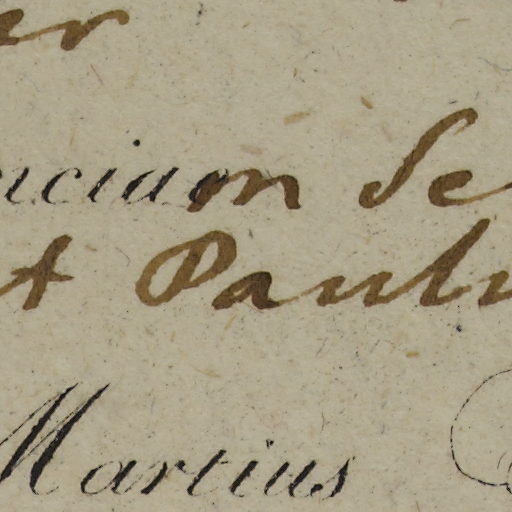 er
nciam Se
t Paulu
Martius